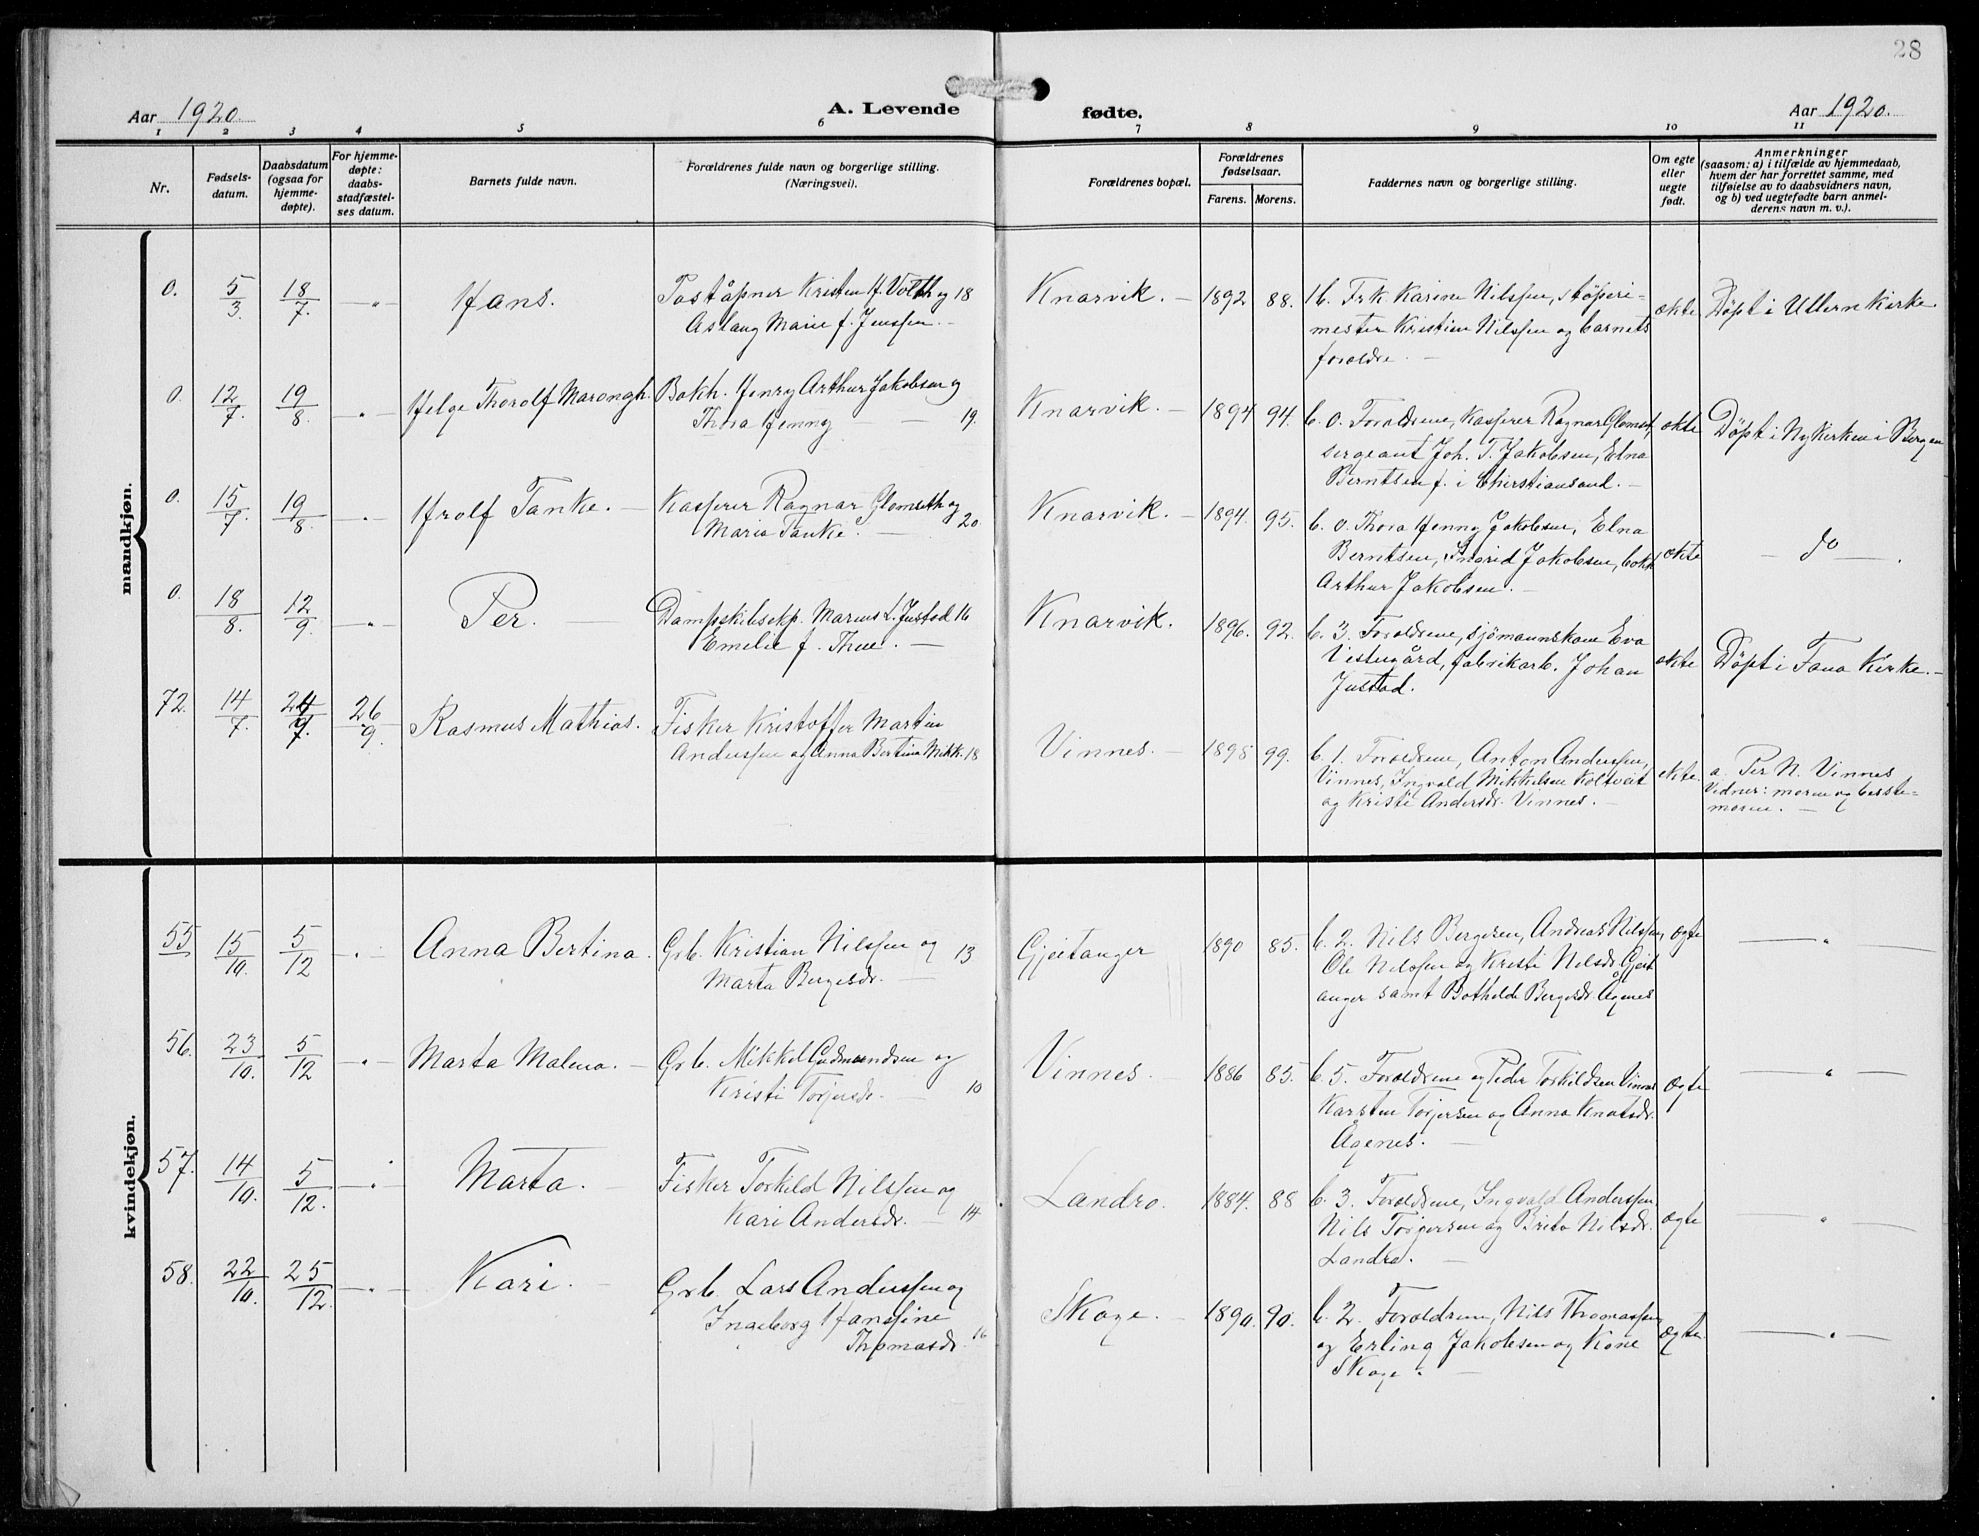 28
Aar 1920.
A. Levende
fødte.
Aar 1920.
1 2 3 4 5 6 7 8 9 10 11
Nr.
Fødsels-
datum.
Daabsdatum
(ogsaa for
hjemme-
døpte).
For hjemme-
døpte:
daabs-
stadfæstel-
ses datum.
Barnets fulde navn.
Forældrenes fulde navn og borgerlige stilling.
(Næringsvei).
Forældrenes bopæl.
Forældrenes
fødselsaar.
Farens. Morens.
Faddernes navn og borgerlige stilling.
Om egte
eller
uegte
født.
Anmerkninger
(saasom: a) i tilfælde av hjemmedaab,
hvem der har forrettet samme, med
tilføielse av to daabsvidners navn,
og b) ved uegtefødte barn anmel-
derens navn m. v.).
mandkjøn.
0. 5/3. 18/7. — " Hans.
Poståpner Kristen f. Volth og 18
Aslaug Marie f. Jenssen. —
Knarvik. — 1892 88.
16. Frk. Karine Nilssen, støperi=
mester Kristian Nilssen og barnets
foraldre. —
ekte Døpt i Ullern Kirke.
0. 12/7. 19/8. — " Helge Thorolf Marongh.
Bokh. Henry Arthur Jakobsen og
Thora Henny — — 19.
Knarvik. — 1894 94.
b. 0. Foraldrene, Kasserer Ragnar Glomset,
sergeant Joh. T. Jakobsen, Elna
Berntsen f. i Christiansand. —
ekte Døpt i Nykirken i Bergen
0. 15/7. 19/8. — " Hrolf Tanke. —
Kasserer Ragnar Glomseth og
Maria Tanke. — 20.
Knarvik. — 1894. 95.
b. 0. Thora Henny Jakobsen, Elna
Berntsen, Ingrid Jakobsen, bokh.
Arthur Jakobsen. —
ekte — do —.
0. 18/8. 12/9. — " Per. —
Dampskibsexp. Marius L. Justad 16
Emelie f. Thue. —
Knarvik. 1896. 92.
b. 3. Foraldrene, sjömannskone Eva
Vestegård, fabrikarb. Johan
Justad.
ekte Døpt i Fana Kirke. —
72. 14/7. 24/7. 26/9. Rasmus Mathias.
Fisker Kristoffer Martin
Anderssen og Anna Bertina Mikk. 18
Vinnes. — 1895 99.
b. 1. Foraldrene, Anton Anderssen,
Vinnes, Ingvald Mikkelsen Koltveit
og Kristi Andersdr. Vinnes. —
ekte. a. Per N. Vinnes
Vidner: moren og beste=
moren. —
kvindekjøn.
55 15/10. 5/12 — " Anna Bertina.
Grb. Kristian Nilssen og 13
Marta Bergesdr. —
Gjeitanger 1890 85.
b. 2. Nils Bergesen, Andreas Nilssen,
Ole Nilssen og Kristi Nilsdr. Gjeit
anger samt Bothilde Bergesdr. Ågenes
ægte — " —
56. 23/10. 5/12 — " Marta Malena. —
Grb. Mikkel Gudmundsen og
Kristi Torjersdr. — 10
Vinnes. 1886 85.
b. 5. Foraldrene og Peder Torkildsen Vinnes
Karsten Torjersen og Anna Knutsdr.
Ågenes. —
ægte — " —
57. 14/10. 5/12. — " Marta. —
Fisker Torkild Nilssen og
Kari Andersdr. — 14
Landro. 1884. 88
b. 3. Foraldrene, Ingvald Anderssen,
Nils Torgersen og Brita Nilsdr.
Landro. —
ægte — " —
58. 22/10. 25/12. — " Kari. —
Grb. Lars Anderssen og
Ingeborg Hansine
Thomasdr. 16
Skoge. — 1890. 90.
b. 2. Foraldrene, Nils Thomassen
og Erling Jakobsen og Kone
Skoge. —
ægte — " —